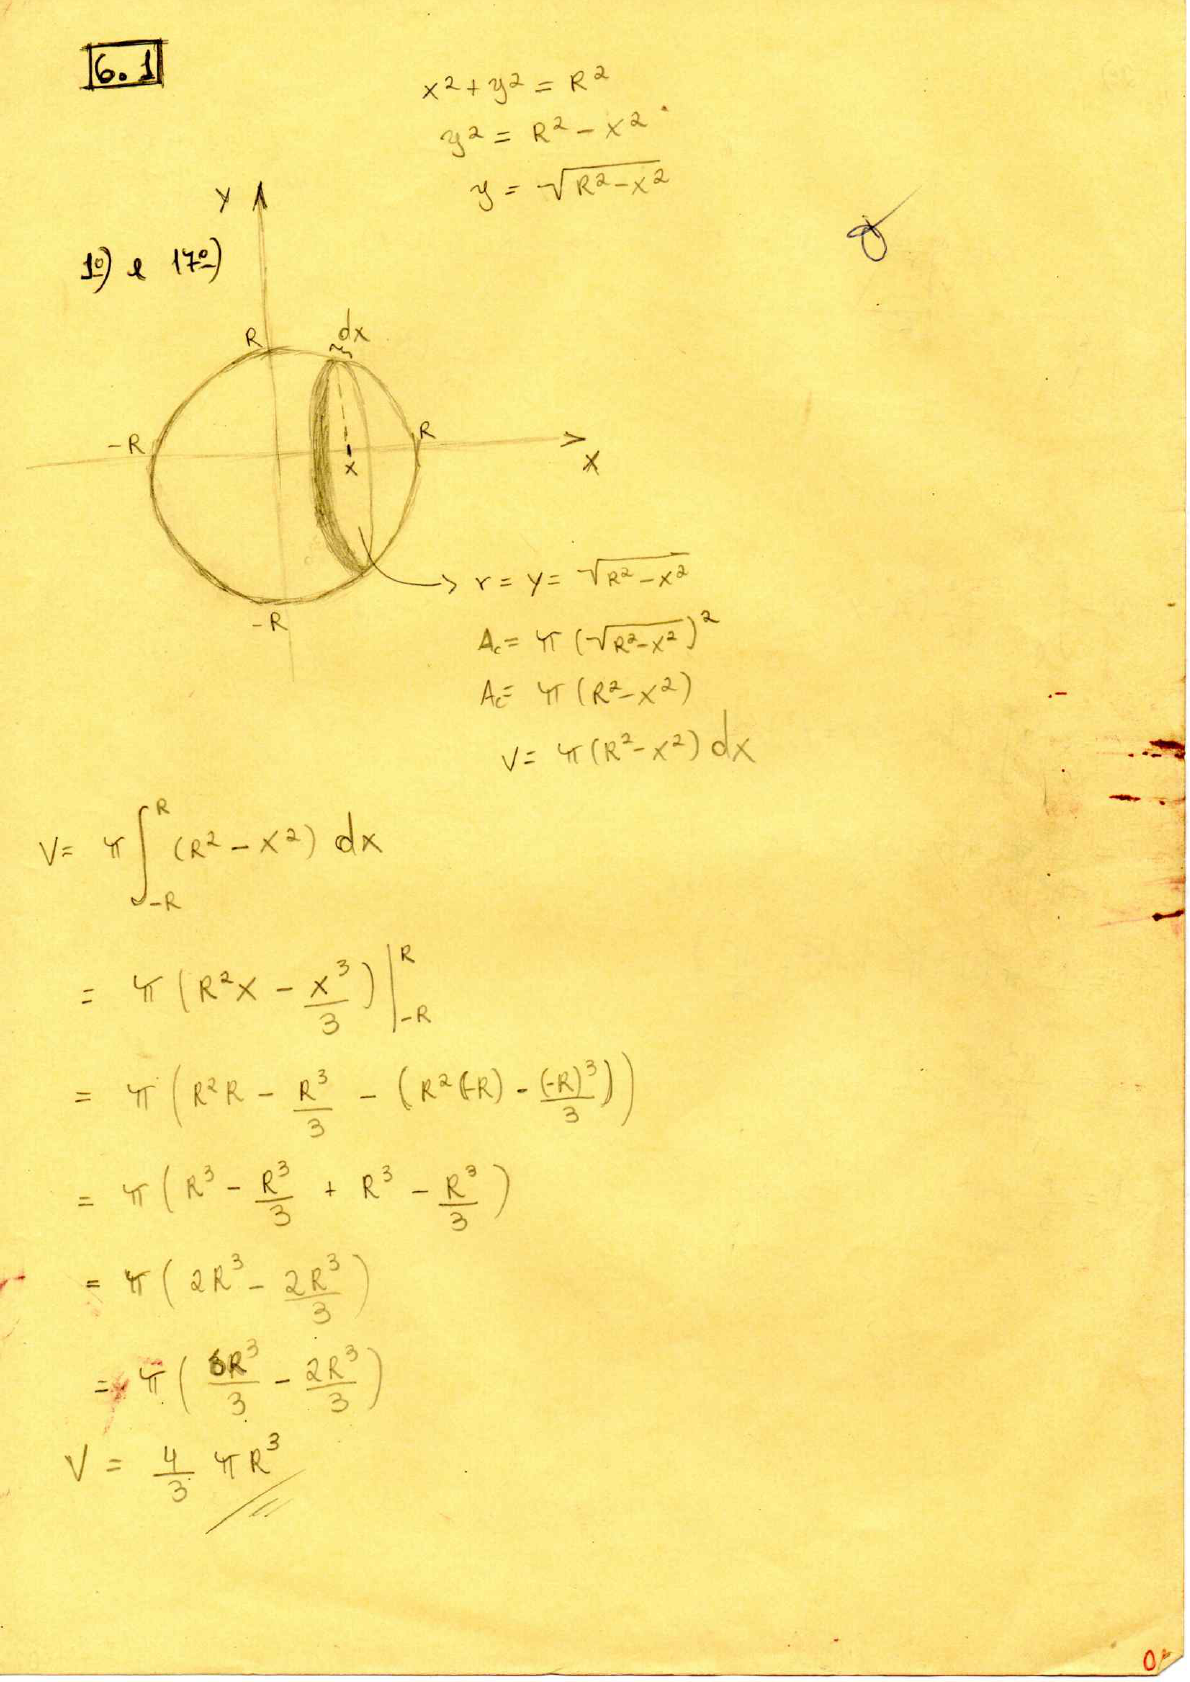 6.1
x² + y² = R²
y² = R² - x²
y = √(R² - x²)
y
1º) e 17º)
R
dx
-R
R
x
x
-R
r = y = √(R² - x²)
Ac = π (√(R² - x²))²
Ac = π (R² - x²)
V = π (R² - x²) dx
V = π ∫_{-R}^{R} (R² - x²) dx
= π (R²x - x³/3) |_{-R}^{R}
= π (R²R - R³/3 - (R²(-R) - (-R)³/3))
= π (R³ - R³/3 + R³ - R³/3)
= π (2R³ - 2R³/3)
= π (6R³/3 - 2R³/3)
V = 4/3 πR³